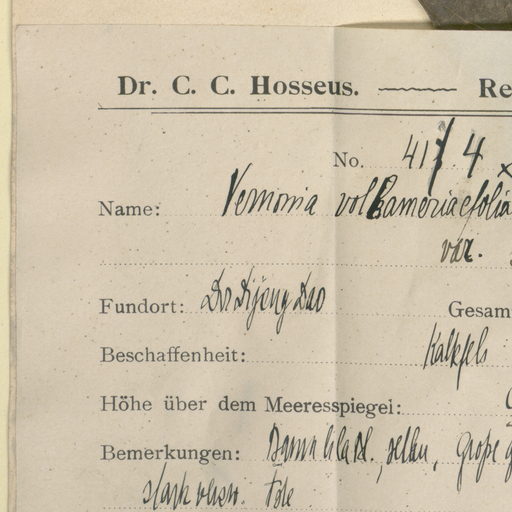 Dr. C. C. Hosseus. Re
No. 417. 4
Name: Vernonia volkameriaefolia
var.
Fundort: Doi Djieng Dao
Gesam
Beschaffenheit: Kalkfels
Höhe über dem Meeresspiegel:
Bemerkungen: selten, Große
stark